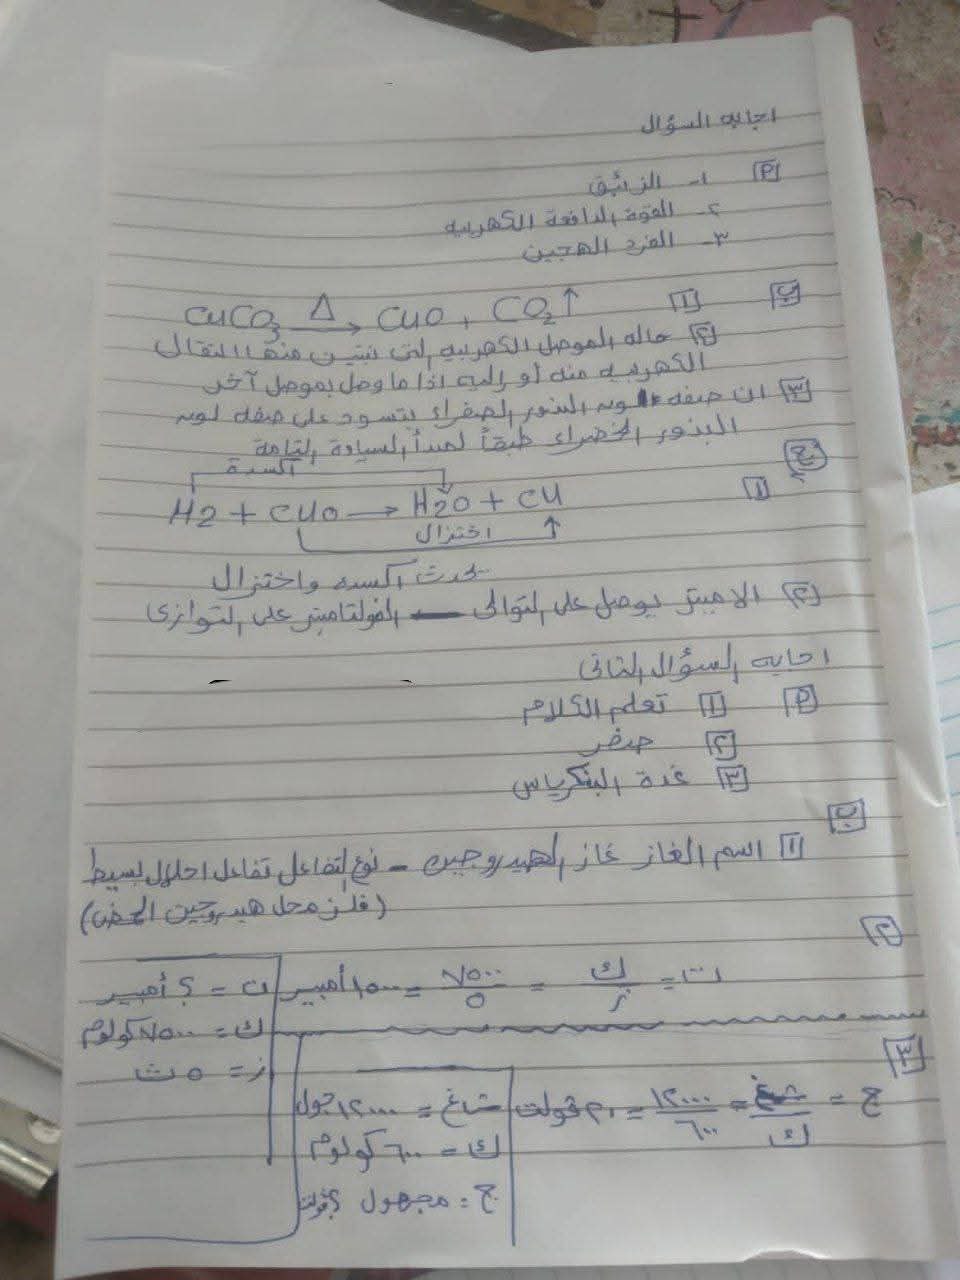 اجابه السؤال
أ ١- الزئبق
٢- القوة الدافعة الكهربيه
٣- الفرد الهجين
ب ١ CuCO3 Δ→ CuO + CO2 ↑
٢ حاله الموصل الكهربيه التى تبين منها انتقال
الكهربيه منه أو إليه اذا ما وصل بموصل آخر
٣ ان صفه لون البذور الصفراء يتسود على صفه لون
البذور الخضراء طبقاً لمبدأ السيادة التامة
ج
أكسدة
١ H2 + CuO → H2O + Cu
اختزال
يحدث أكسده واختزال
٢ الاميتر يوصل على التوالى – الفولتاميتر على التوازى
اجابه السؤال التانى
أ ١ تعلم الكلام
٢ صفر
٣ غدة البنكرياس
ب
١ اسم الغاز غاز الهيدروجين - نوع التفاعل تفاعل احلال بسيط
(فلز محل هيدروجين الحمض)
٢
ت = ك/ز = ٧٥٠٠/٥ = ١٥٠٠ أمبير
ت = ؟ أمبير
ك = ٧٥٠٠ كولوم
ز = ٥ ث
٣
ج = شغ/ك = ١٢٠٠٠/٦٠٠ = ٢٠ فولت
شغ = ١٢٠٠٠ جول
ك = ٦٠٠ كولوم
ج = مجهول ؟ فولت